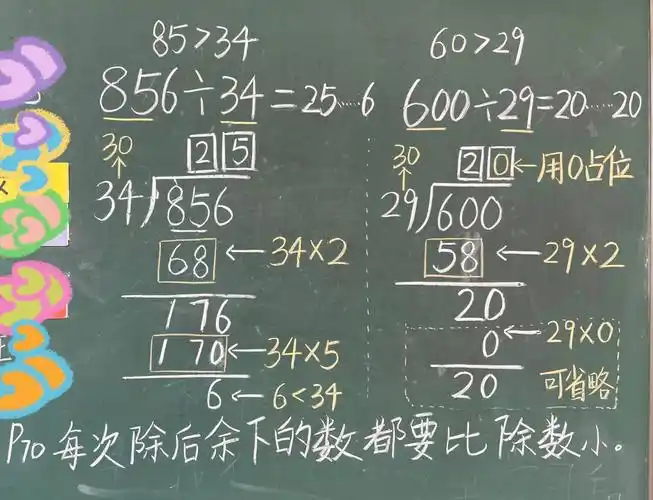 85>34 60>29
856÷34=25……6 600÷29=20……20
30 25 30 20←用0占位
34)856 29)600
68←34×2 58←29×2
176 20
170←34×5 0←29×0
6←6<34 20 可省略
P70 每次除后余下的数都要比除数小。